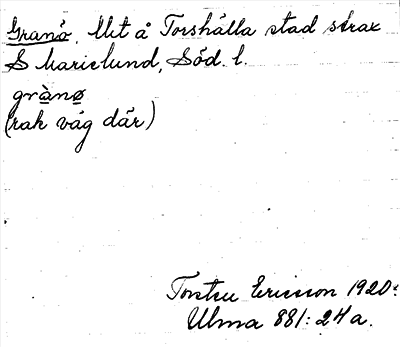 Granö. Utt å Torshälla stad strax
S Marielund, Söd. l.
grànø
(rak väg där)
Torsten Ericsson 1920:
Ulma 881:24 a.